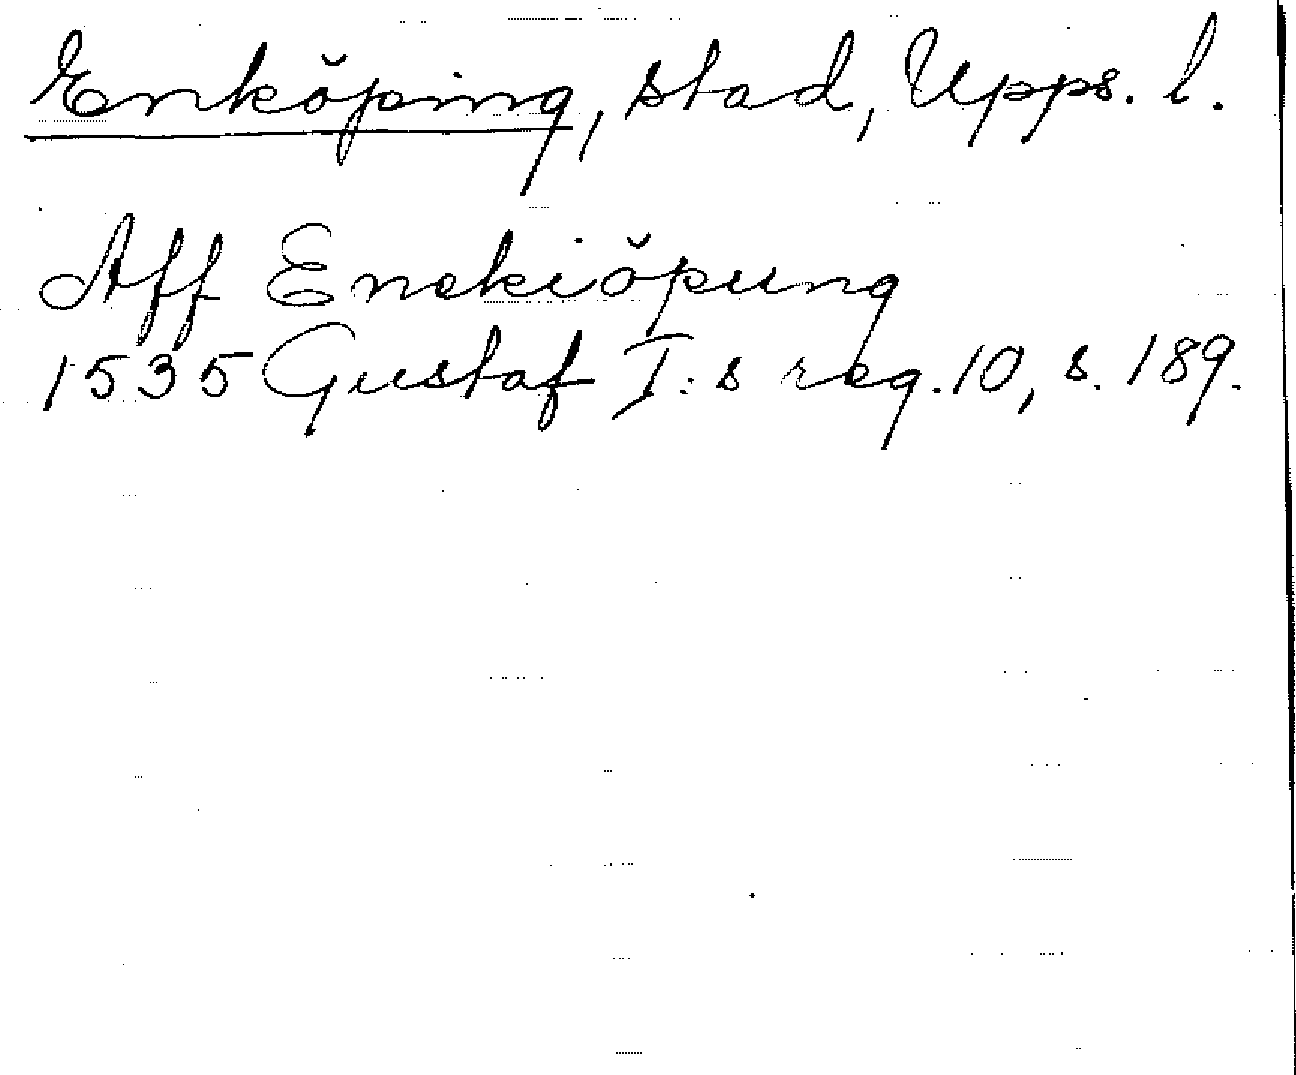 Enköping, stad, Upps. l.
Aff Enekiöpung
1535 Gustaf I:s reg. 10, s. 189.